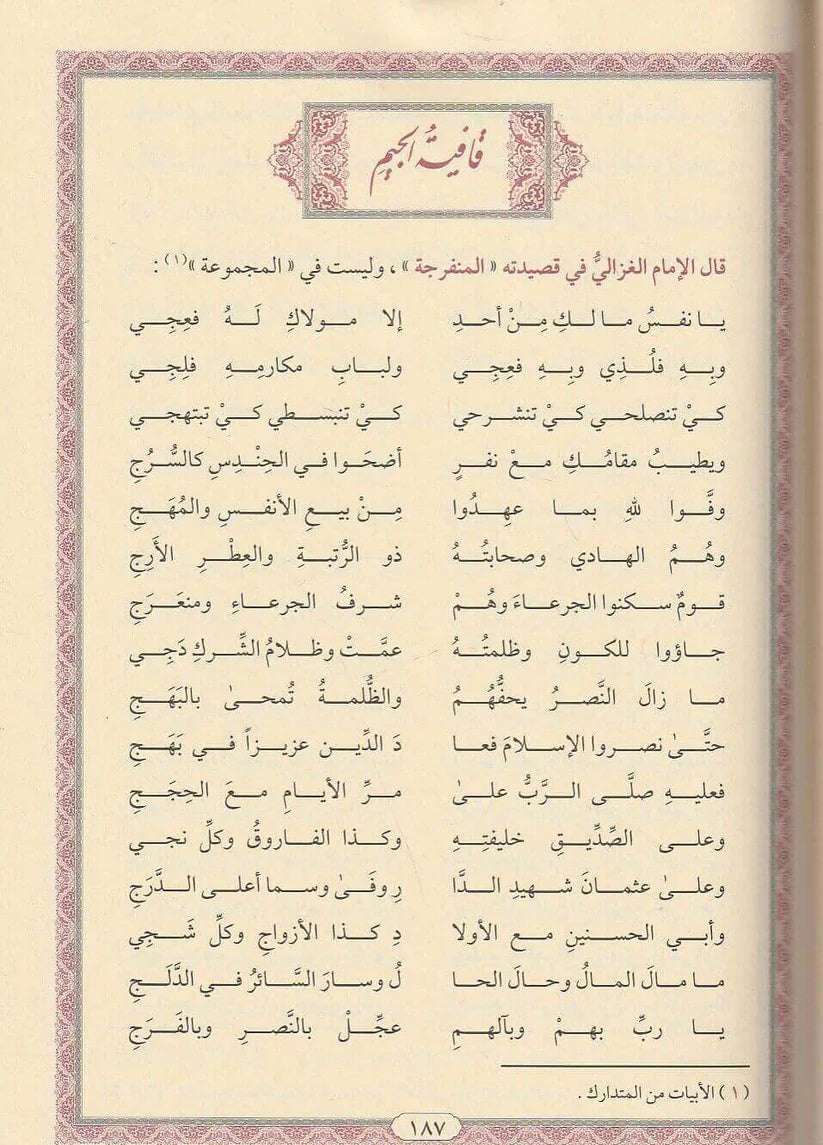 قافية الجيم
قال الإمام الغزاليُّ في قصيدته « المنفرجة » ، وليست في « المجموعة »(١) :
يا نفسُ ما لكِ مِنْ أحدِ إلا مولاكِ لَهُ فعِجِي
وبِهِ فلُذِي وبِهِ فعِجِي ولبابِ مكارمِهِ فلِجِي
كيْ تنصلحي كيْ تنشرحي كيْ تنبسطي كيْ تبتهجي
ويطيبُ مقامُكِ معْ نفرٍ أضحَوا في الحِنْدِسِ كالسُّرُجِ
وفَّوا للهِ بما عهِدُوا مِنْ بيعِ الأنفسِ والمُهَجِ
وهُمُ الهادي وصحابتُهُ ذو الرُّتبةِ والعِطْرِ الأَرِجِ
قومٌ سكنوا الجرعاءَ وهُمْ شرفُ الجرعاءِ ومنعَرَجِ
جاؤوا للكونِ وظلمتُهُ عمَّتْ وظلامُ الشِّركِ دَجِي
ما زالَ النَّصرُ يحفُّهُمُ والظُّلمةُ تُمحىٰ بالبَهَجِ
حتَّىٰ نصروا الإسلامَ فعا دَ الدِّين عزيزاً في بَهَجِ
فعليهِ صلَّى الرَّبُّ علىٰ مرِّ الأيامِ معَ الحِجَجِ
وعلى الصِّدِّيقِ خليفتِهِ وكذا الفاروقُ وكلِّ نجي
وعلىٰ عثمانَ شهيدِ الدَّا رِ وفَىٰ وسما أعلى الدَّرَجِ
وأبي الحسنينِ مع الأولا دِ كذا الأزواجِ وكلِّ شَجِي
ما مالَ المالُ وحالَ الحا لُ وسارَ السَّائرُ في الدَّلَجِ
يا ربِّ بهمْ وبآلهمِ عجِّلْ بالنَّصرِ وبالفَرَجِ
(١) الأبيات من المتدارك .
١٨٧